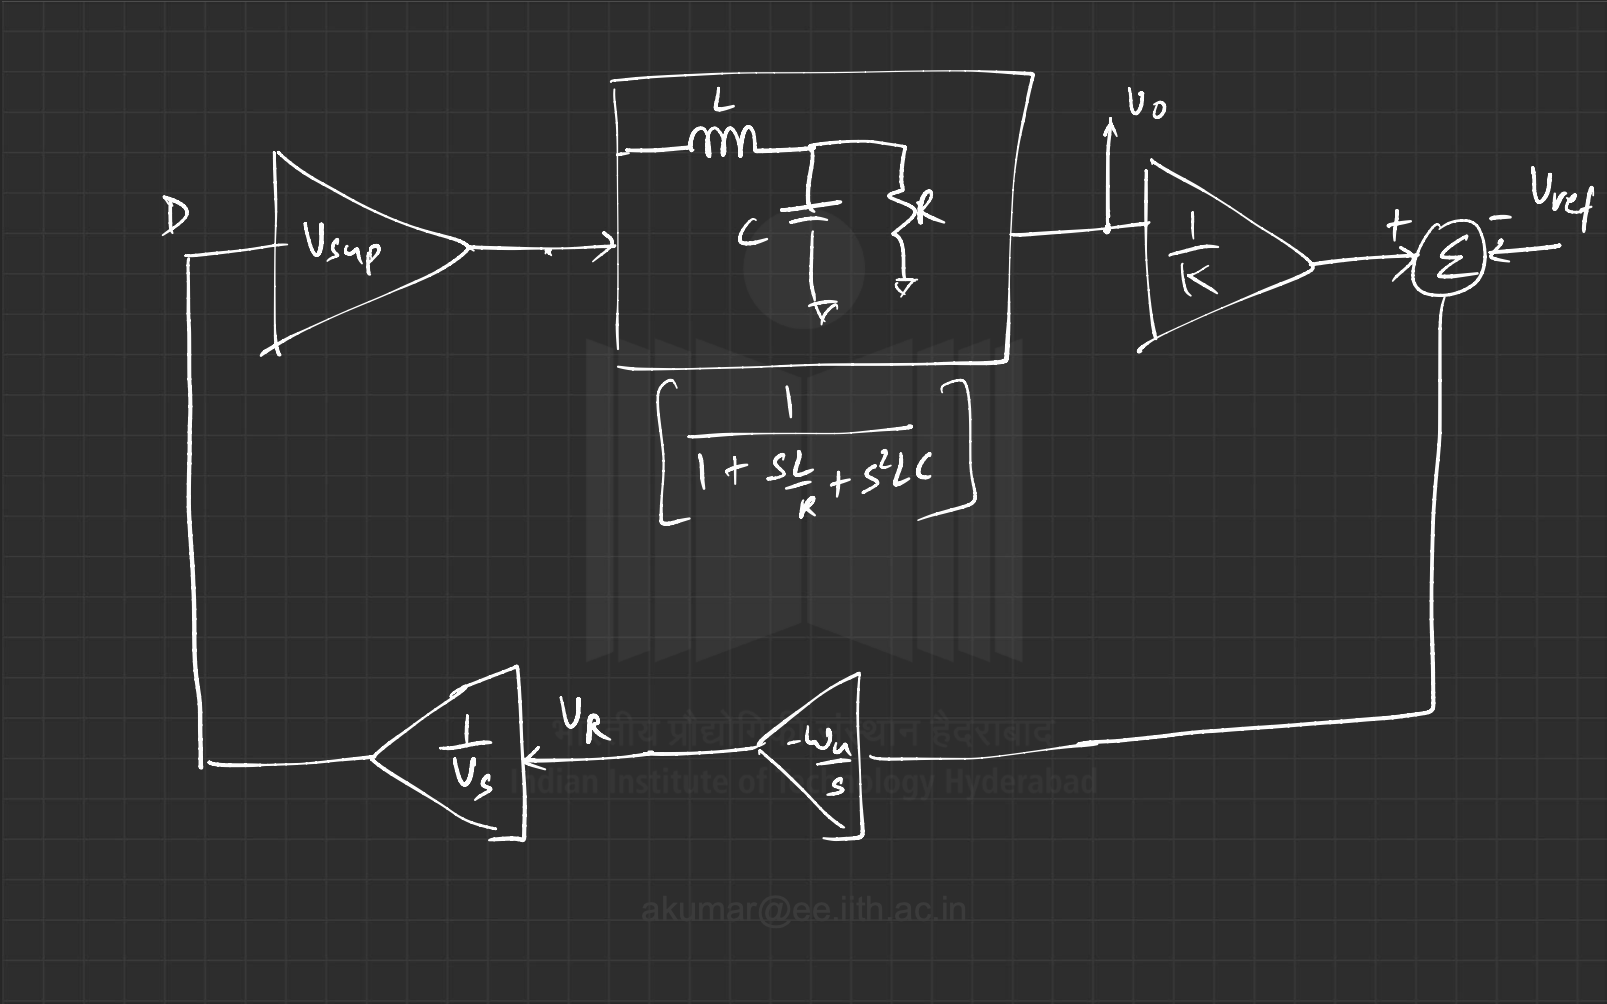 L
V₀
D
V_sup
C
R
1/K
+
-
V_ref
Σ
[1/(1 + sL/R + s²LC)]
1/V_s
V_R
-ω_u/s
भारतीय प्रौद्योगिकी संस्थान हैदराबाद
Indian Institute of Technology Hyderabad
akumar@ee.iith.ac.in